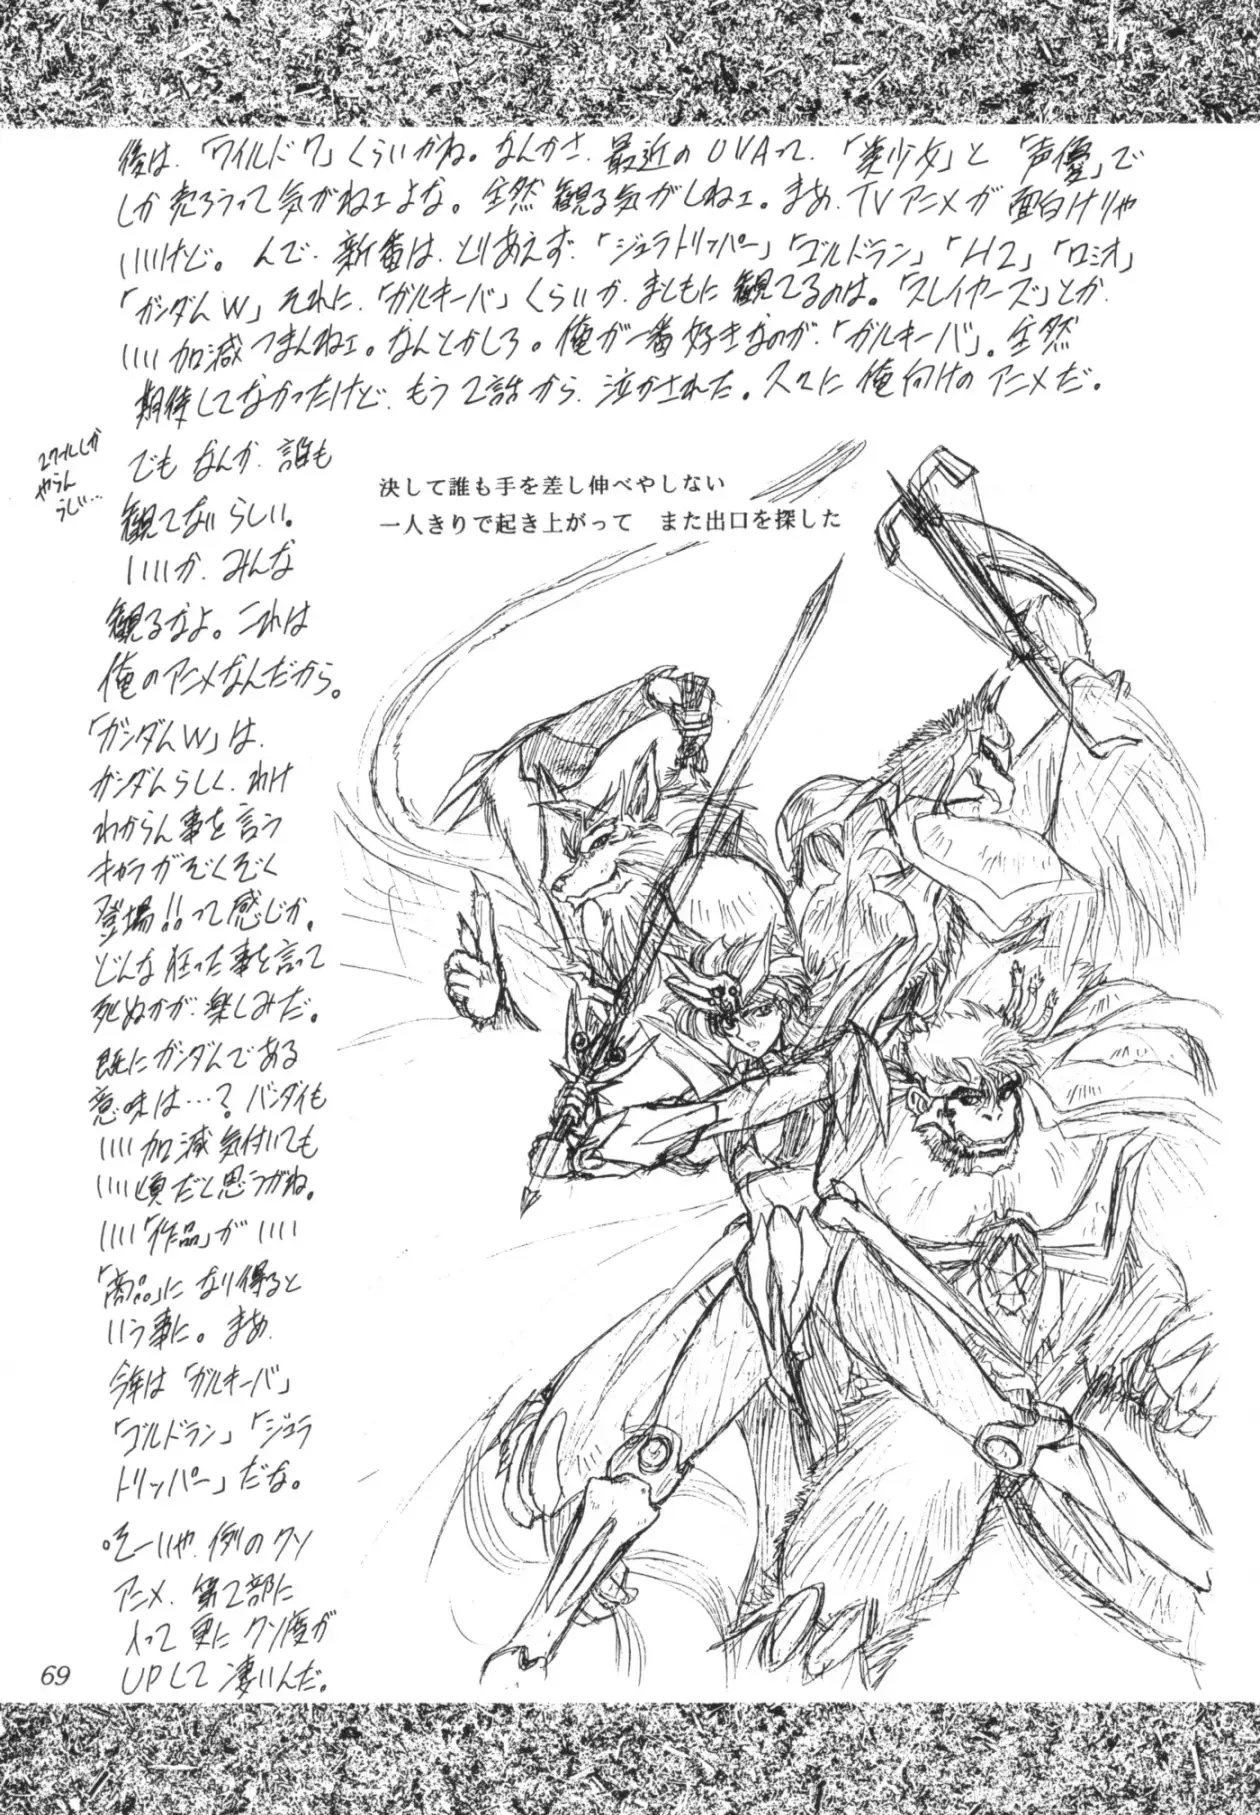 後は、「ワイルド7」くらいかね。なんかさ、最近のOVAって、「美少女」と「声優」で
しか売ろうって気がねェよな。全然観る気がしねェ。まぁ、TVアニメが面白けりゃ
いいけど。んで、新番は、とりあえず、「ジュラトリッパー」「ゴルドラン」「H2」「ロミオ」
「ガンダムW」それに、「ガルキーバ」くらいか、まともに観てるのは。「スレイヤーズ」とか、
いい加減つまんねェ。なんとかしろ。俺が一番好きなのが、「ガルキーバ」。全然
期待してなかったけど、もう2話から、泣かされた。久々に俺向けのアニメだ。
でもなんか、誰も
観てないらしい。
いいか、みんな
観るなよ。これは
俺のアニメなんだから。
「ガンダムW」は、
ガンダムらしく、わけ
わからん事を言う
キャラがぞくぞく
登場!!って感じか。
どんな狂った事を言って
死ぬかが、楽しみだ。
既にガンダムである
意味は…?バンダイも
いい加減気付いても
いい頃だと思うがね。
いい「作品」がいい
「商品」になり得ると
いう事に。まぁ、
今年は「ガルキーバ」
「ゴルドラン」「ジュラ
トリッパー」だな。
。そーいや、例のクソ
アニメ、第2部に
入って更にクソ度が
UPして凄いんだ。
2クールしか
やらん
らしい…
決して誰も手を差し伸べやしない
一人きりで起き上がって　また出口を探した
69